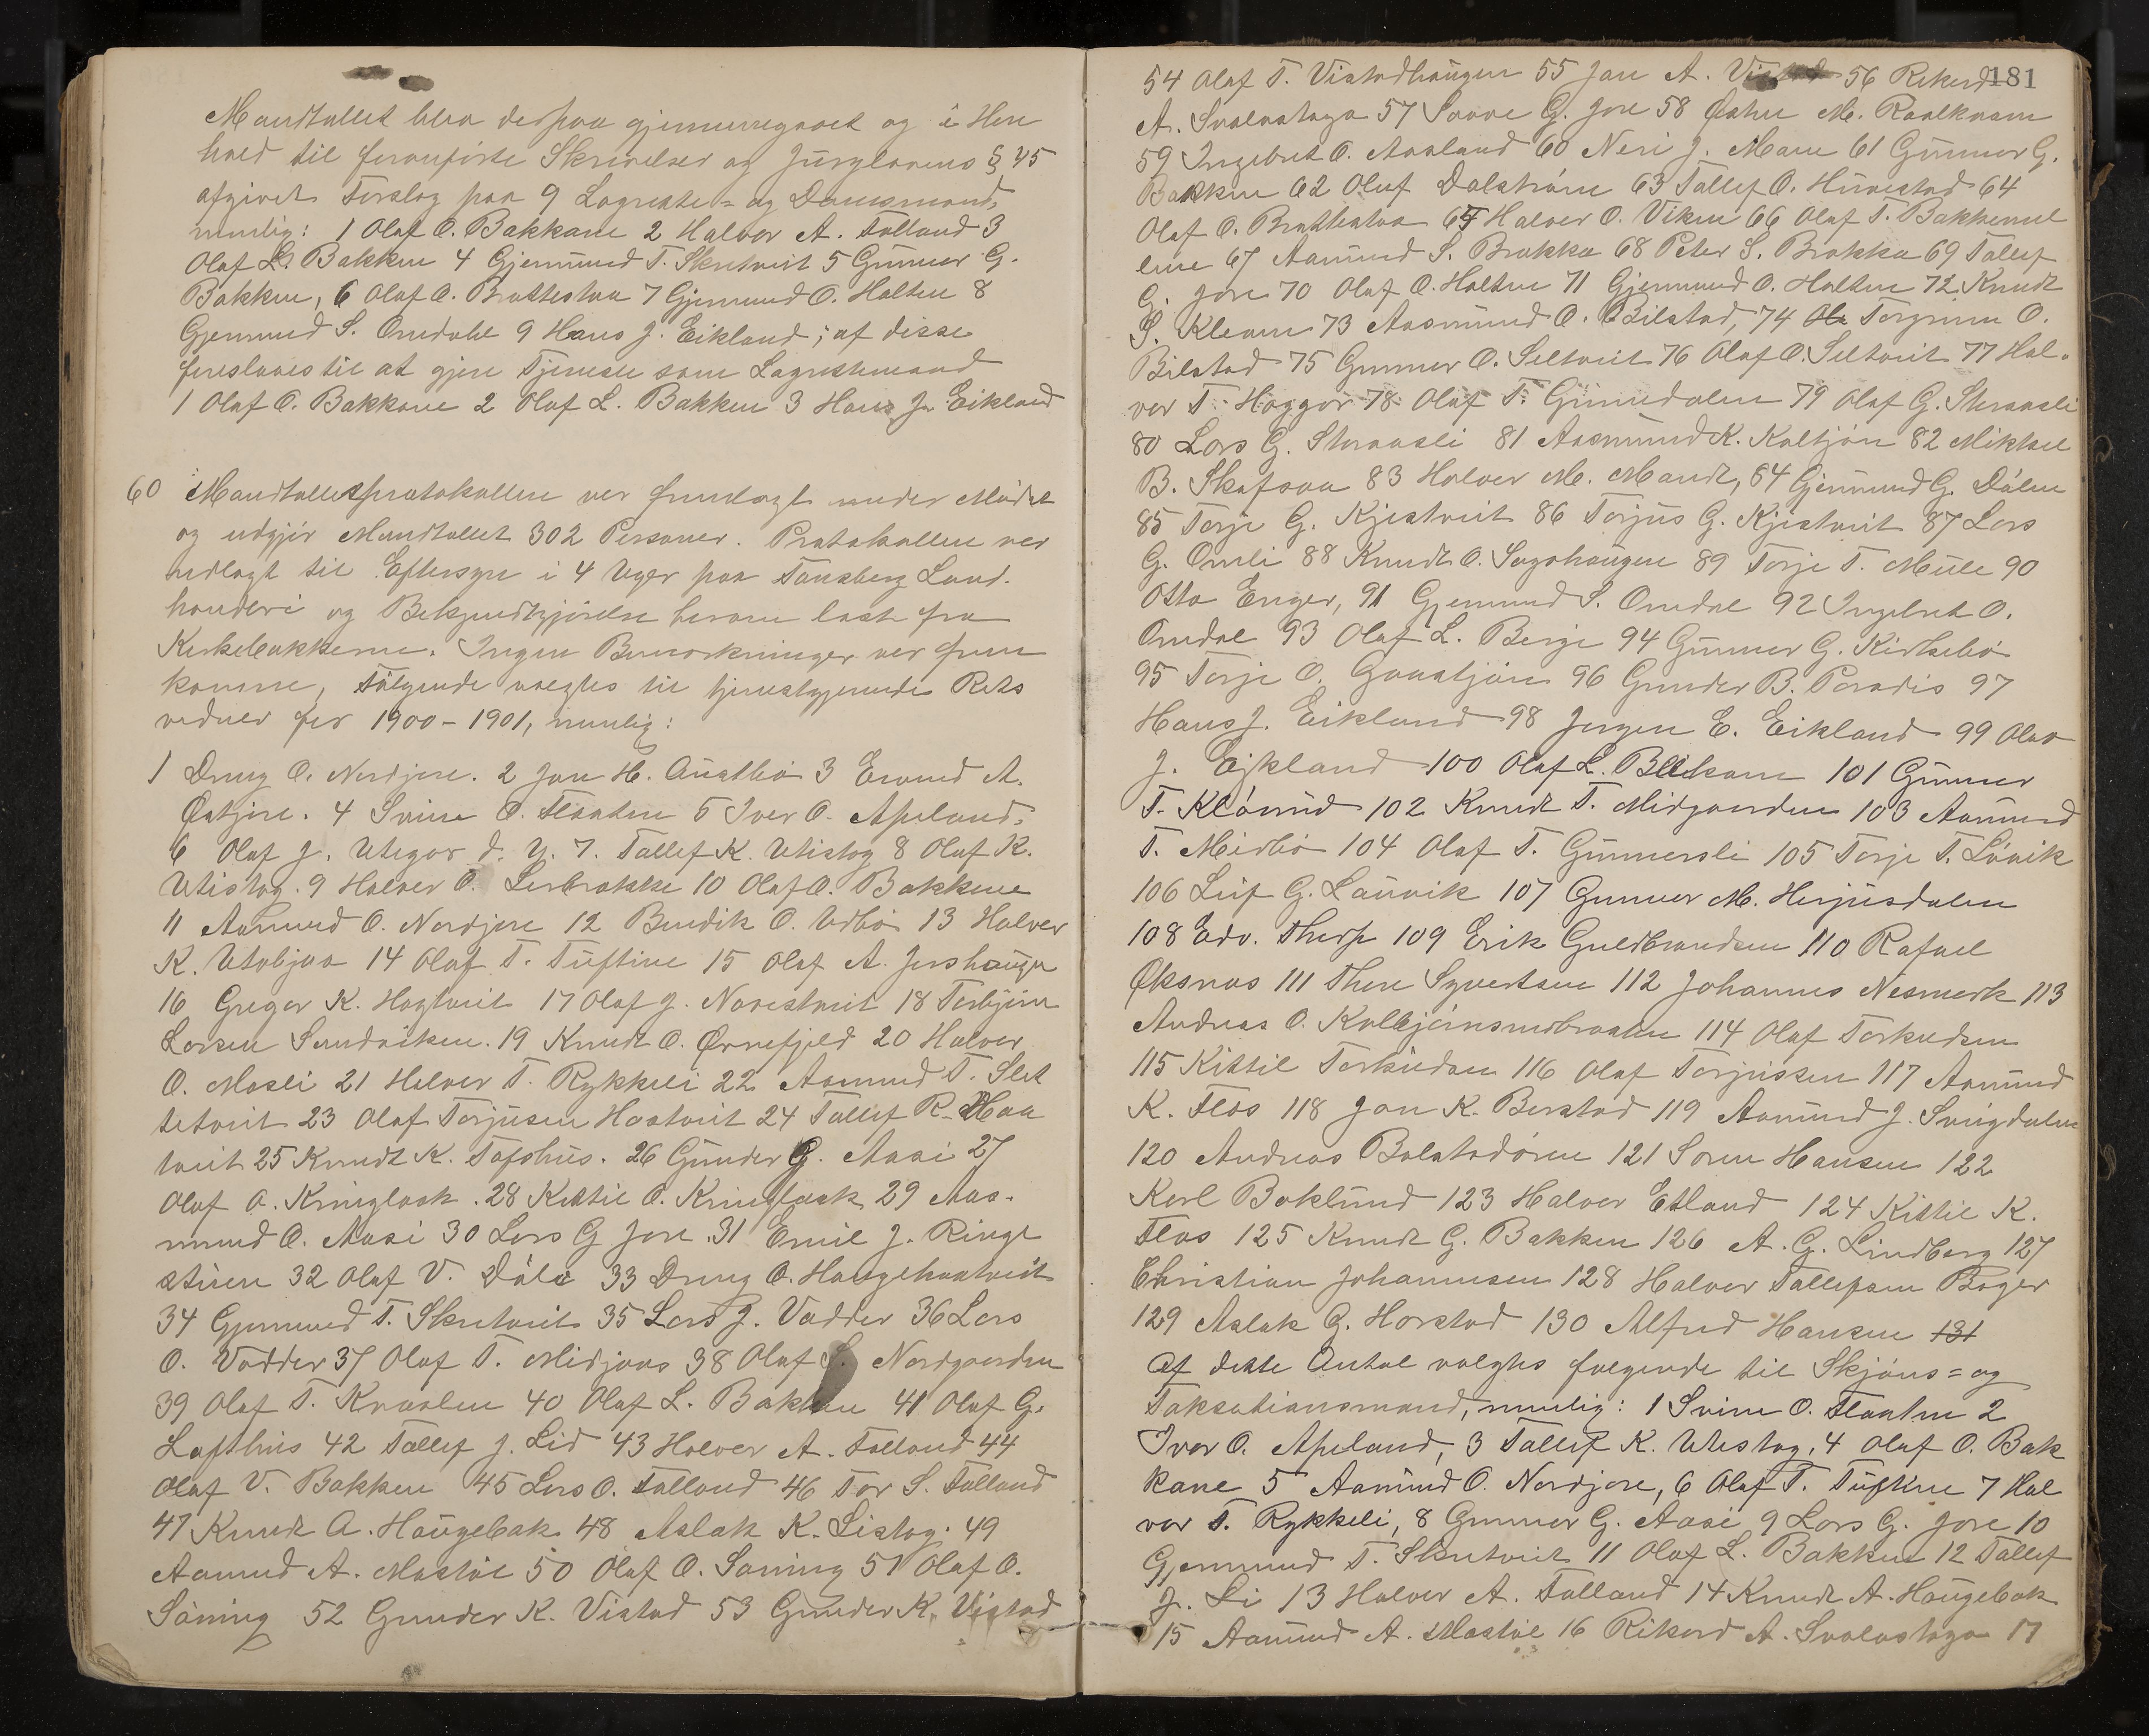 Mandtallet blev derpaa gjennemgaaet og i Hen
hold til foranførte Skrivelser og Jurylovens § 45
afgivet Forslag paa 9 Lagrettes- og Domsmænd,
nemlig: 1 Olaf O. Bakkane 2 Halvor A. Folland 3
Olaf L. Bakken 4 Gjermund T. Skretveit 5 Gunnar G.
Bakken, 6 Olaf O. Brattestaa 7 Gjermund O. Holten 8
Gjermund S. Omdal 9 Hans J. Eikland; af disse
foreslaaes til at gjøre Tjeneste som Lagrettemænd
1 Olaf O. Bakkane 2 Olaf L. Bakken 3 Hans J. Eikland
60 Mandtalletsprotokollen var fremlagt under Mødet
og udgjør Mandtallet 302 Personer. Protokollen var
udlagt til Eftersyn i 4 Uger paa Tansberg Land.
handleri og Bekjendtgjørelse herom læst fra
Kirkebakkerne. Ingen Bemærkninger var frem
komne, Følgende valgtes til tjenestgjørende Rets
vidner for 1900-1901, nemlig:
1 Dreng O. Nordjore. 2 Jon H. Austbø 3 Eivind A.
Østjore. 4 Svein O. Flaaten 5 Iver O. Apeland.
6 Olaf J. Utegar d. y. 7. Tallef K. Utistog 8 Olaf K.
Utistog. 9 Halvor O. Lerbrække 10 Olaf O. Bakkene
11 Aamund O. Nordjore 12 Bendik O. Udbø 13 Halvor
K. Utobjaa 14 Olaf T. Tuftine 15 Olaf A. Jorshaugen
16 Gregar K. Hogtveit 17 Olaf J. Norestveit 18 Torbjørn
Larsen Sundviken. 19 Knudt O. Ørnefjeld 20 Halvor
O. Mosli 21 Halvor T. Rykkeli 22 Aamund T. Slet
tetveit 23 Olaf Torjusen Haatveit 24 Tallef R. Haa
tveit 25 Knudt K. Tofshus. 26 Gunder G. Aasi 27
Olaf O. Kringlaak. 28 Kittil O. Kringlaak 29 Aas-
mund O. Aasi 30 Lars G Jore. 31 Emil J. Ringe
stuen 32 Olaf V. Døle 33 Dreng O. Haugehaatveit
34 Gjermund T. Skretveit 35 Lars J. Vadder 36 Lars
O. Vadder 37 Olaf T. Midjaas 38 Olaf S. Nordgaarden
39 Olaf T. Kvaalen 40 Olaf L. Bakken 41 Olaf G.
Lofthus 42 Tallef J. Lid 43 Halvor A. Folland 44
Olaf V. Bakken 45 Lars O. Folland 46 Tor S. Folland
47 Knudt A. Haugebak 48 Aslak K. Listog. 49
Aamund A. Mostøl 50 Olaf O. Søning 51 Olaf O.
Søning 52 Gunder K. Vistad 53 Gunder K. Vistad
181
54 Olaf T. Vistadhaugen 55 Jon A. Vistad 56 Rikard
A. Svalastoga 57 Saave G. Jore 58 Østen M. Raalkvam
59 Ingebret O. Aasland 60 Neri J. Mæen 61 Gunnar G.
Bakken 62 Oluf Dalstrøm 63 Tallef O. Huvestad 64
Olaf O. Brattestaa 65 Halvor O. Viken 66 Olaf T. Bakkemel
lene 67 Aamund S. Brække 68 Peter S. Brække 69 Tallef
G. Jore 70 Olaf O. Holten 71 Gjermund O. Holten 72 Knudt
S. Kleven 73 Aasmund O. Bilstad, 74 Ole Torgrim O.
Bilstad 75 Gunnar O. Seltveit 76 Olaf O. Seltveit 77 Hal-
vor T. Hæggør 78 Olaf T. Grimedalen 79 Olaf G. Straasli
80 Lars G. Straasli 81 Aasmund K. Koltjøn 82 Mikkel
B. Skafsaa 83 Halvor M. Mandt, 84 Gjermund G. Dølen
85 Torje G. Kjistveit 86 Torjus G. Kjistveit 87 Lars
G. Omli 88 Knudt O. Sagahaugen 89 Torje T. Mule 90
Otto Enger, 91 Gjermund S. Omdal 92 Ingebret O.
Omdal 93 Olaf L. Berge 94 Gunnar G. Kirkebø
95 Torje O. Gaastjøn 96 Gunder B. Paradis 97
Hans J. Eikland 98 Jørgen E. Eikland 99 Olav
J. Ejkland 100 Olaf L. Blekam 101 Gunnar
T. Kløvrud 102 Knudt T. Midgaarden 103 Aamund
T. Meirbø 104 Olaf T. Gunnersli 105 Torje T. Løvik
106 Leif G. Lauvik 107 Gunvor M. Herjusdalen
108 Edv. Thorp 109 Erik Guldbrandsen 110 Rafael
Øksnæs 111 Thore Syvertsen 112 Johannes Nesmerk 113
Andreas O. Kolbjørnsmobraaten 114 Olaf Torkildsen
115 Kittil Torkildsen 116 Olaf Torjussen 117 Aamund
K. Flos 118 Jon K. Berstad 119 Aamund J. Svigdalen
120 Andreas Bolstadøren 121 Soren Hansen 122
Karl Boklund 123 Halvor Etland 124 Kittil K.
Flos 125 Knudt G. Bakken 126 A. G. Lindberg 127
Christian Johannesen 128 Halvor Tallefsen Bøger
129 Aslak G. Harstad 130 Alfred Hansen 131
Af dette Antal valgtes følgende til Skjøns- og
Taksationsmænd, nemlig: 1 Svein O. Flaaten 2
Iver O. Apeland, 3 Tallef K. Utistog, 4 Olaf O. Bak
kane 5 Aamund O. Nordjore, 6 Olaf T. Tuftine 7 Hal
vor T. Rykkeli, 8 Gunnar G. Aasi 9 Lars G. Jore 10
Gjermund T. Skretveit 11 Olaf L. Bakken 12 Tallef
J. Li 13 Halvor A. Folland 14 Knudt A. Haugebak
15 Aamund A. Mostøl 16 Rikard A. Svalastoga 17